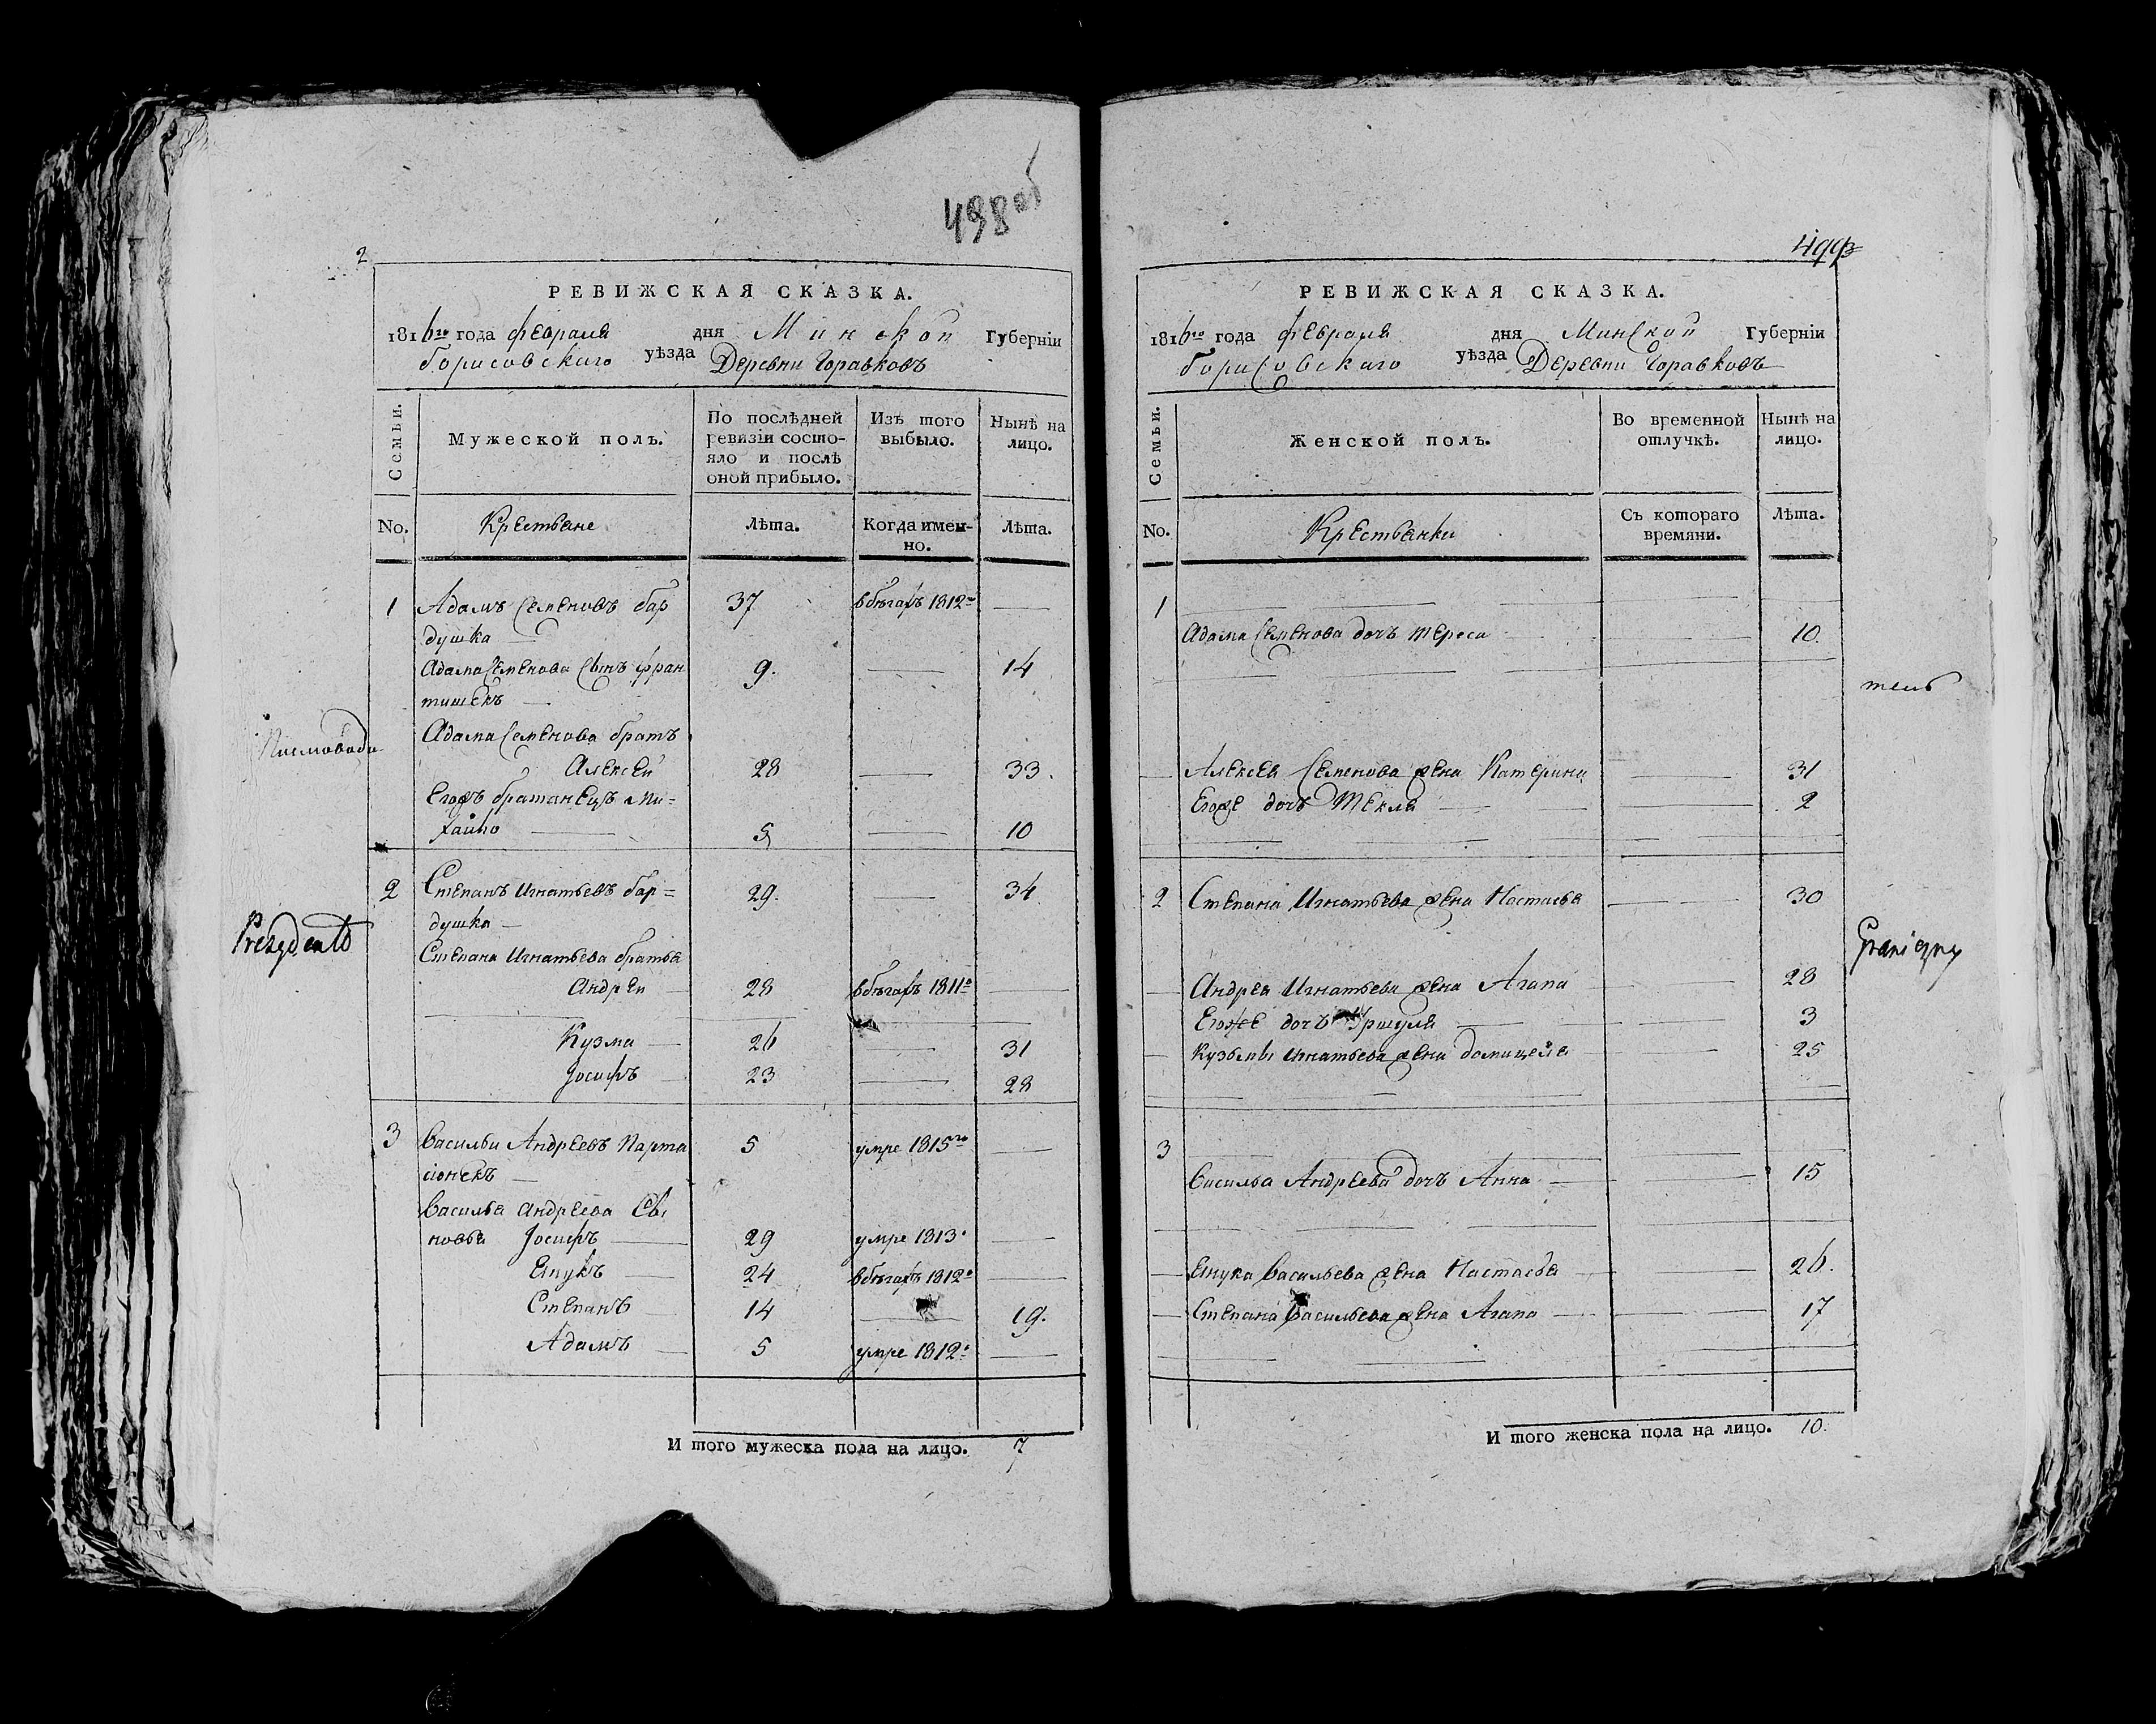 498 об
2
РЕВИЖСКАЯ СКАЗКА.
1816го года февраля дня Минской Губерніи
борисовскаго уѣзда Деревни Чоравковъ
Семьи.
Мужеской полъ.
По послѣдней ревизіи состояло и послѣ оной прибыло.
Изъ того выбыло.
Нынѣ на лицо.
No.
Крестьяне
Лѣта.
Когда именно.
Лѣта.
1 Адамъ Семеновъ бар 37 вбѣгахъ 1812го —
душка —
Адама Семенова Сынъ фран 9. — 14
тишекъ —
Адама Семенова братъ
Алексей 28 — 33.
Егожъ братанецъ Ми=
хайло — 5 — 10
2 Степанъ Игнатьевъ бар= 29. — 34
душка —
Степана Игнатьева братья
Андрей 28 вбѣгахъ 1811о —
Кузма — 26 — 31
Іосифъ 23 — 28
3 Васильи Андреевъ Парта 5 умре 1815го —
іонекъ —
Василья Андреева Сы
новья Іосифъ — 29 умре 1813о —
Янукъ — 24 вбѣгахъ 1812о —
Степанъ 14 — 19.
Адамъ — 5 умре 1812о —
И того мужеска пола на лицо. 7
Писмоводи
Prezydentъ
499
РЕВИЖСКАЯ СКАЗКА.
1816го года февраля дня Минской Губерніи
борисовскаго уѣзда Деревни Чоравковъ
Семьи.
Женской полъ.
Во временной отлучкѣ.
Нынѣ на лицо.
No.
Крестьянки
Съ котораго времяни.
Лѣта.
1
Адама Семенова дочъ Тереса — 10.
— Алексея Семенова жена Катерина — 31
Егоже дочъ Текля — 2
2 Степана Игнатьева жена Настасья — 30
— Андрея Игнатьева жена Агапа — 28
Егоже дочъ Уршуля — 3
— Кузьмы Игнатьева жена Домицеля — 25
3
Василья Андреева дочъ Анна — 15
— Янука Васильева жена Настасья — 26.
— Степана Васильева жена Агапа — 17
И того женска пола на лицо. 10.
тель